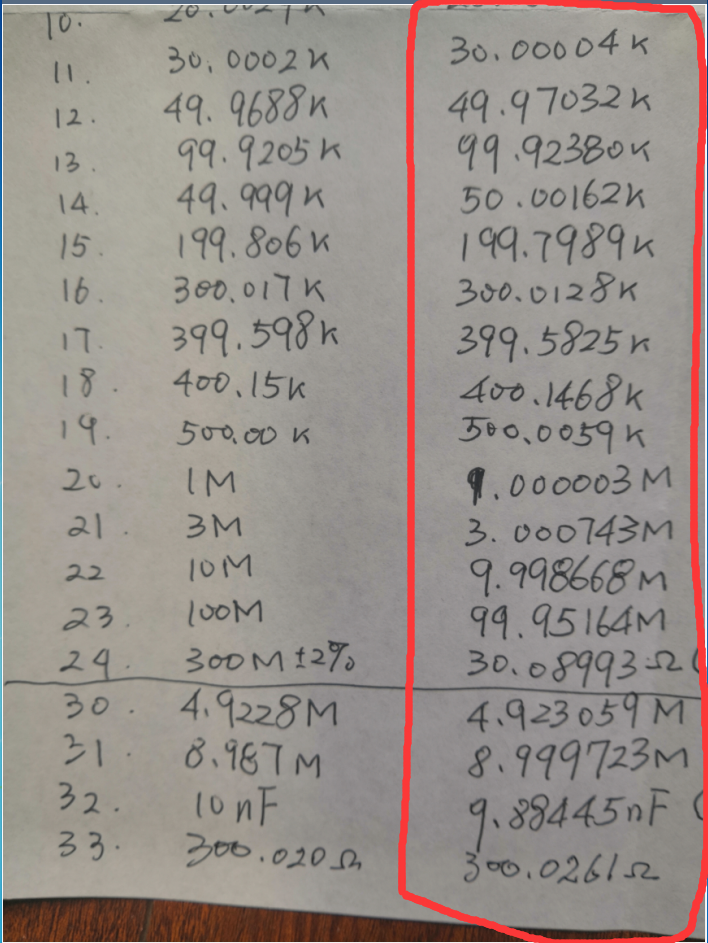 10. 20.0029K
11. 30.0002K 30.00004K
12. 49.9688K 49.97032K
13. 99.9205K 99.92380K
14. 49.999K 50.00162K
15. 199.806K 199.7989K
16. 300.017K 300.0128K
17. 399.598K 399.5825K
18. 400.15K 400.1468K
19. 500.00K 500.0059K
20. 1M 1.000003M
21. 3M 3.000743M
22 10M 9.998668M
23. 100M 99.95164M
24. 300M±2% 30.08993Ω(
30. 4.9228M 4.923059M
31. 8.987M 8.999723M
32. 10nF 9.88445nF (
33. 300.020Ω 300.0261Ω